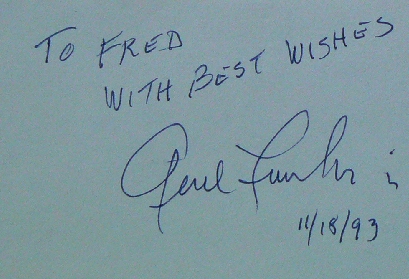 To FRED
WITH BEST WISHES
11/18/93